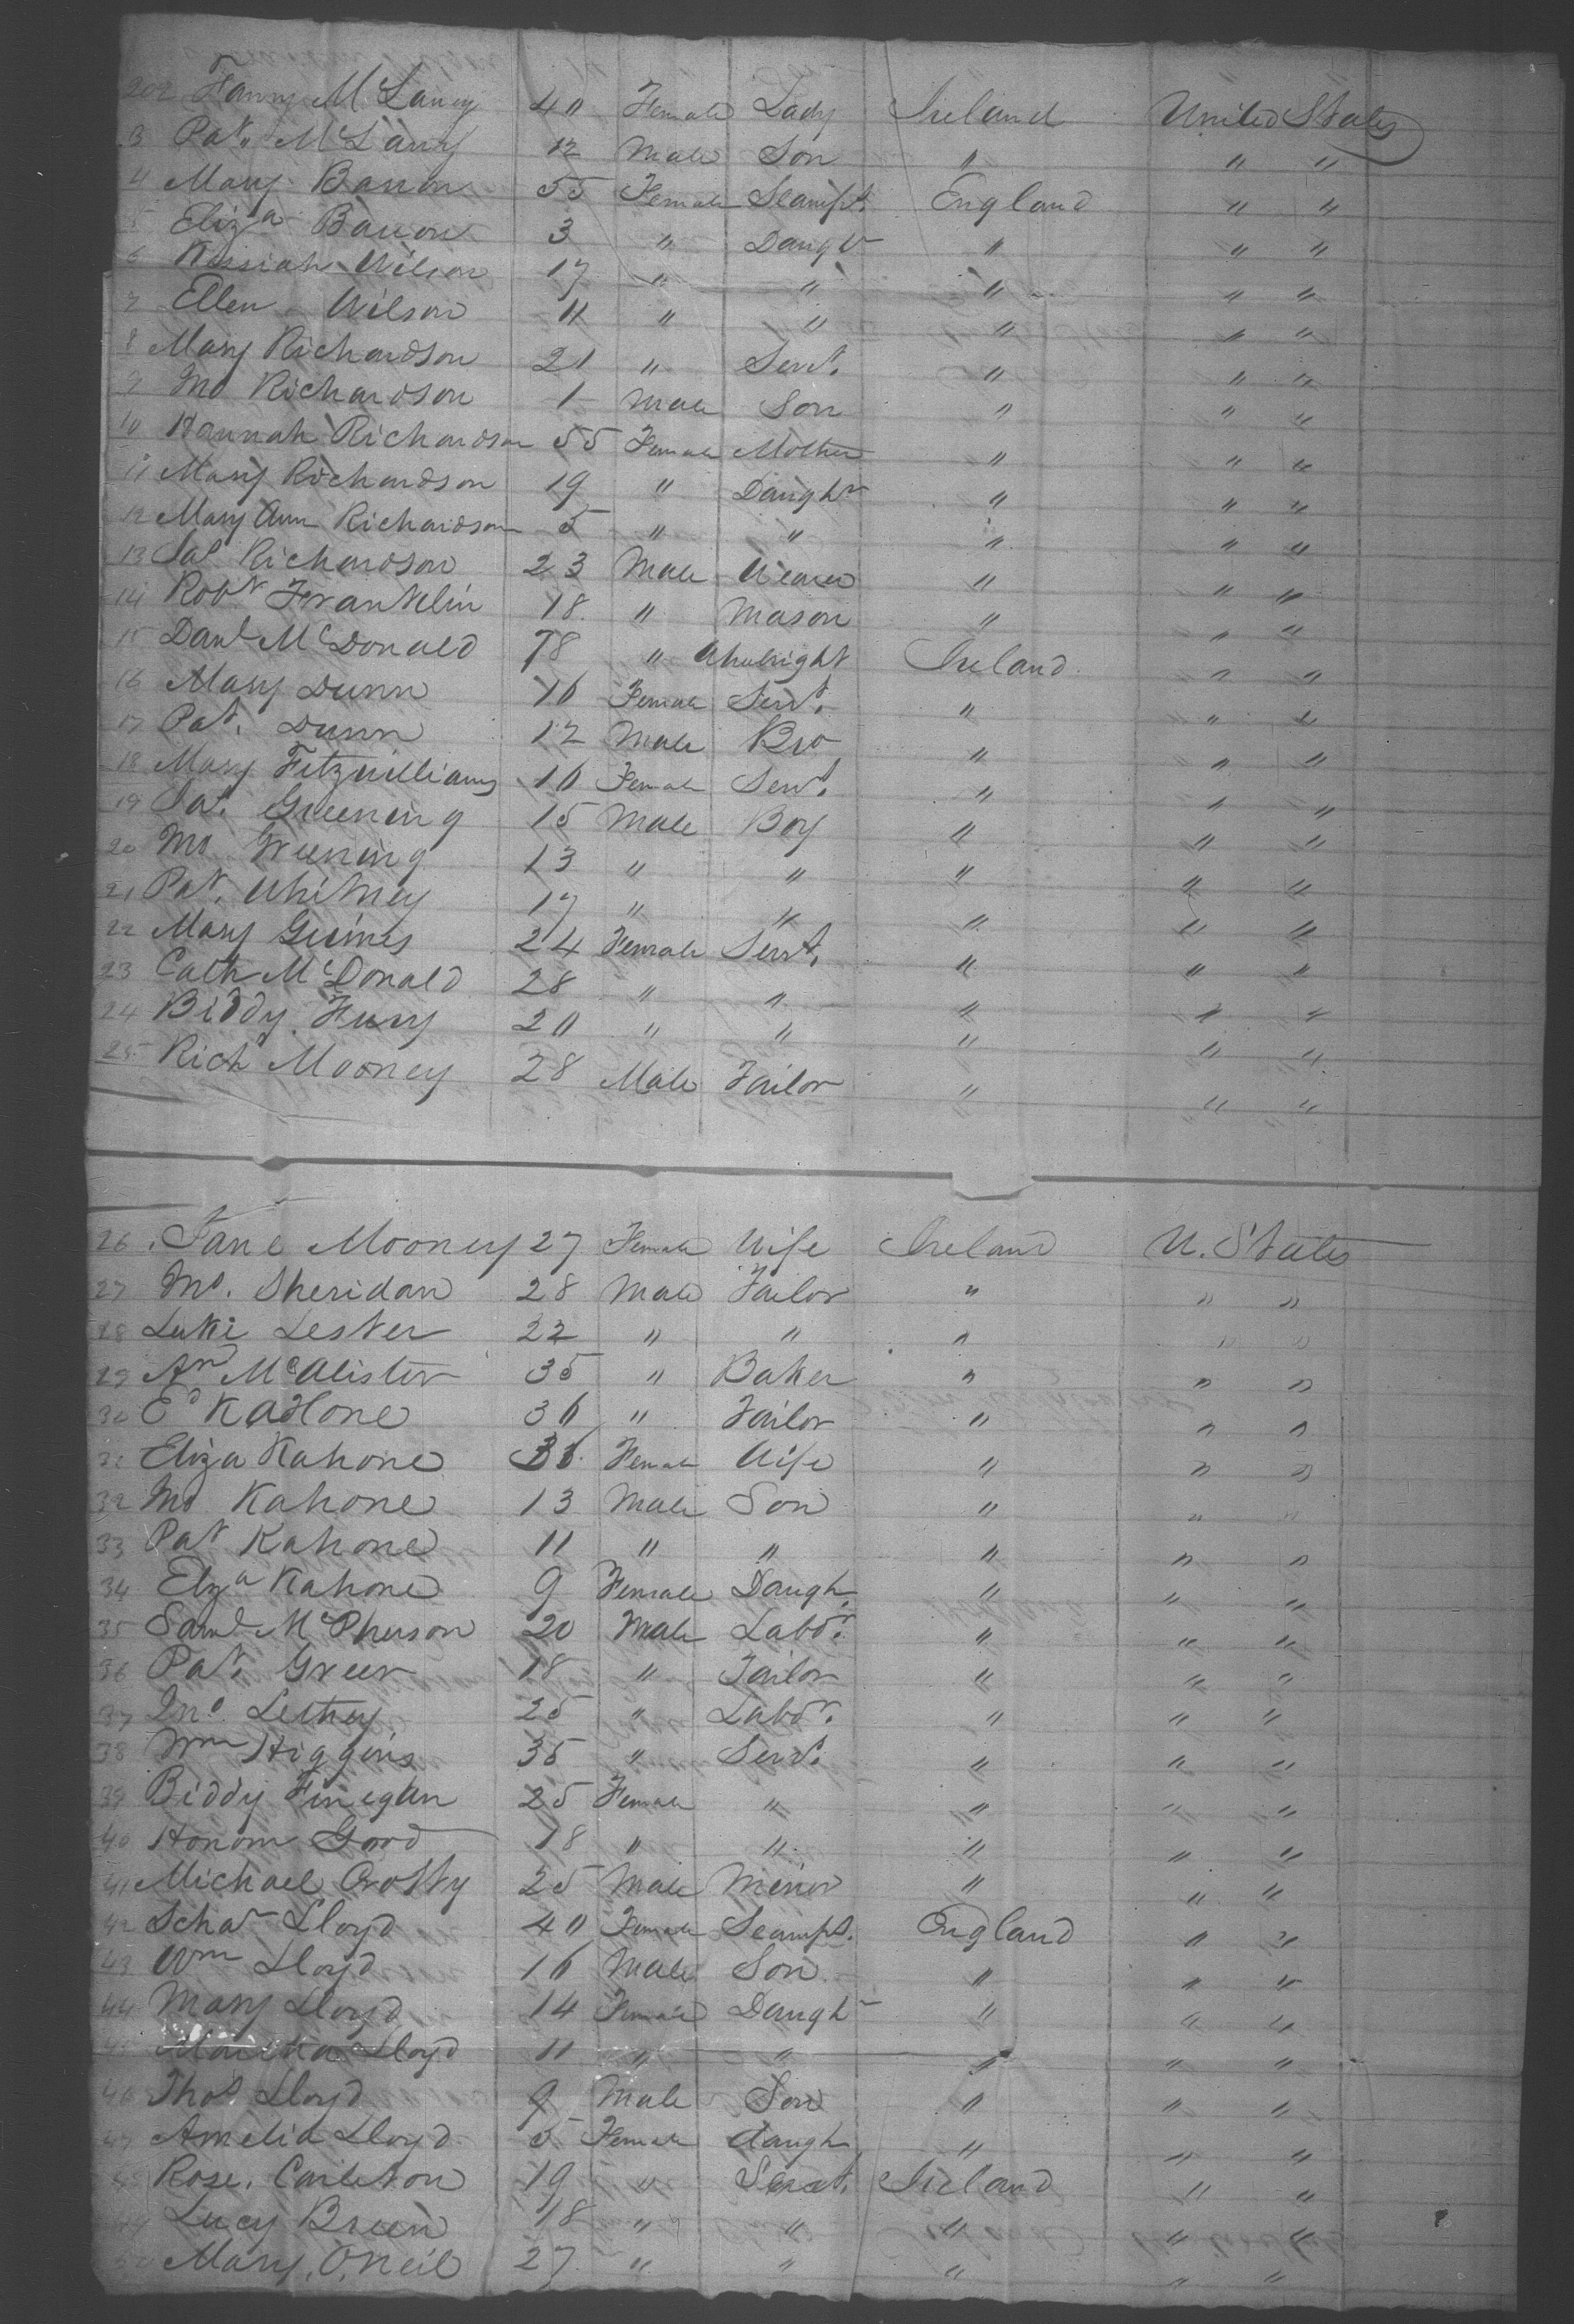 202 Fanny McLaney 40 Female Lady Ireland United States
3 Pat. McLany 12 Male Son " " "
4 Mary Barron 55 Female Seampst. England " "
5 Eliza Barron 3 " Daughr " " "
6 Kissiah Wilson 17 " " " " "
7 Ellen Wilson 11 " " " " "
8 Mary Richardson 21 " Servt. " " "
9 Mo Richardson 1 Male Son " " "
10 Hannah Richardson 55 Female Mother " " "
11 Mary Richardson 19 " Daughr " " "
12 Mary Ann Richardson 5 " " " " "
13 Jas Richardson 23 Male Weaver " " "
14 Robt Franklin 18 " Mason " " "
15 Danl McDonald 78 " Whelright Ireland " "
16 Mary Dunn 16 Female Servt. " " "
17 Pat. Dunn 12 Male Bro " " "
18 Mary Fitzwilliams 16 Female Servt. " " "
19 Jas. Greening 15 Male Boy " " "
20 Mo Greening 13 " " " " "
21 Pat. Whitney 17 " " " " "
22 Mary Guines 24 Female Servt. " " "
23 Cath McDonald 28 " " " " "
24 Biddy Fury 20 " " " " "
25 Richd Mooney 28 Male Tailor " " "
26 Jane Mooney 27 Female Wife Ireland U. States
27 Mo. Sheridan 28 Male Tailor " " "
28 Luke Lester 22 " " " " "
29 Ann McAlister 35 " Baker " " "
30 Ed Kahone 36 " Tailor " " "
31 Eliza Kahone 36 Female Wife " " "
32 Mo Kahone 13 Male Son " " "
33 Pat Kahone 11 " " " " "
34 Elza Kahone 9 Female Daugh. " " "
35 Saml McPherson 20 Male Labor. " " "
36 Pat. Greer 18 " Tailor " " "
37 Jno. Lethey 25 " Labor. " " "
38 Wm Higgins 35 " Servt. " " "
39 Biddy Finegan 25 Female " " " "
40 Honom Good 18 " " " " "
41 Michael Crotty 25 Male Minor " " "
42 Schar Lloyd 40 Female Seampst. England " "
43 Wm Lloyd 16 Male Son " " "
44 Mary Lloyd 14 Female Daughr " " "
45 Martha Lloyd 11 " " " " "
46 Thos Lloyd 9 Male Son " " "
47 Amelia Lloyd 5 Female daugh " " "
48 Rose. Carleton 19 " Servt. Ireland " "
49 Lucy Breen 18 " " " " "
50 Mary. O.Neil 27 " " " " "